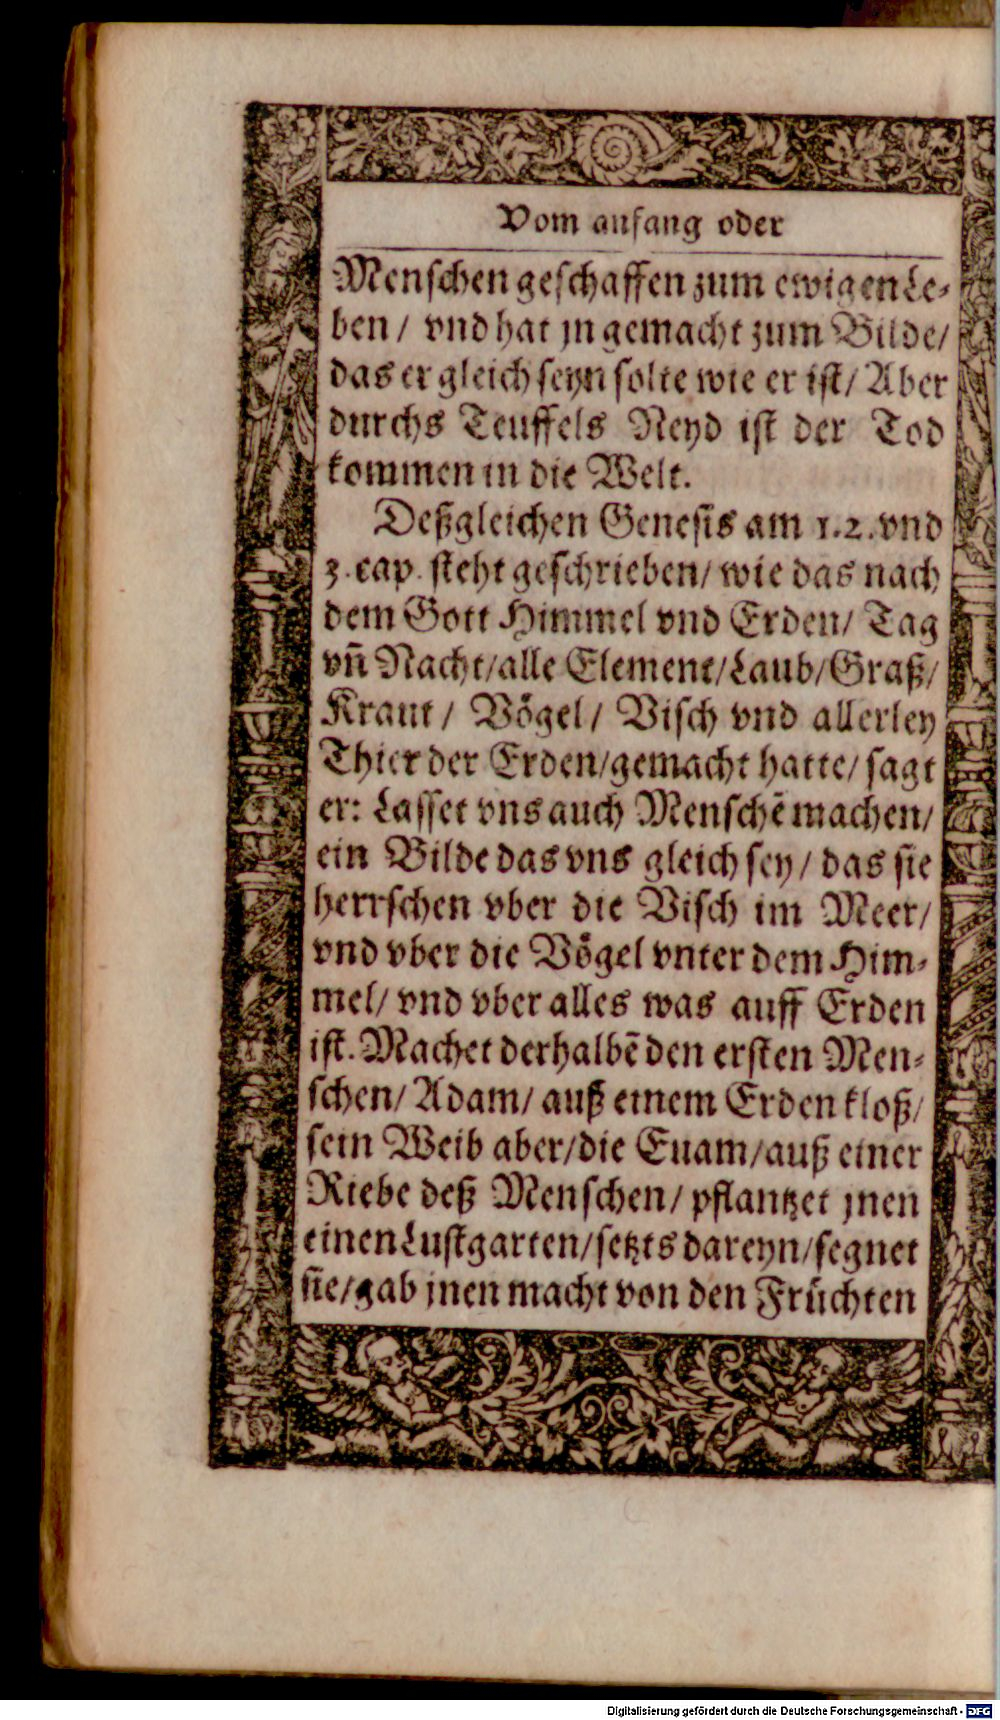 Vom anfang oder
Menschen geschaffen zum ewigen Le-
ben / vnd hat jn gemacht zum Bilde /
das er gleich seyn solte wie er ist / Aber
durchs Teuffels Neyd ist der Tod
kommen in die Welt.
Deßgleichen Genesis am 1. 2. vnd
3. cap. steht geschrieben / wie das nach
dem Gott Himmel vnd Erden / Tag
vñ Nacht / alle Element / Laub / Graß /
Kraut / Vögel / Visch vnd allerley
Thier der Erden / gemacht hatte / sagt
er: Lasset vns auch Menschē machen /
ein Bilde das vns gleich sey / das sie
herrschen vber die Visch im Meer /
vnd vber die Vögel vnter dem Him-
mel / vnd vber alles was auff Erden
ist. Machet derhalbē den ersten Men-
schen / Adam / auß einem Erden kloß /
sein Weib aber / die Euam / auß einer
Riebe deß Menschen / pflantzet jnen
einen Lustgarten / setzts dareyn / segnet
sie / gab jnen macht von den Früchten
Digitalisierung gefördert durch die Deutsche Forschungsgemeinschaft - DFG